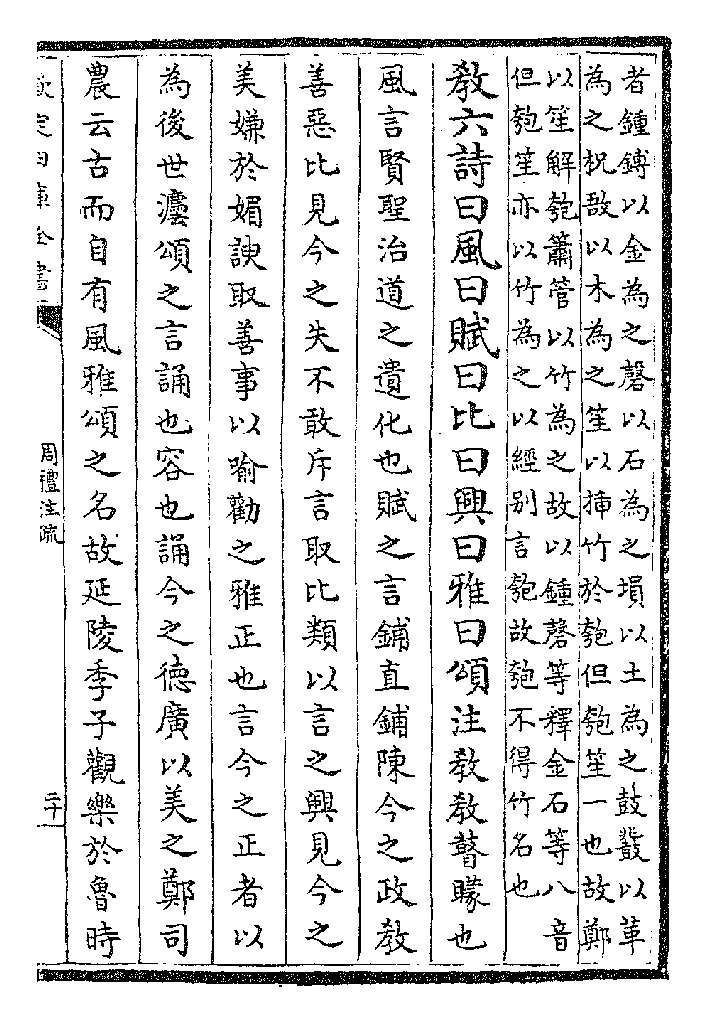 者鍾鎛以金為之磬以石為之塤以土為之鼓鼗以革
為之柷敔以木為之笙以揷竹於匏但匏笙一也故鄭
以笙解匏簫管以竹為之故以鍾磬等釋金石等八音
但匏笙亦以竹為之以經别言匏故匏不得竹名也
教六詩曰風曰賦曰比曰興曰雅曰頌注教教瞽矇也
風言賢聖治道之遺化也賦之言鋪直鋪陳今之政教
善惡比見今之失不敢斥言取比類以言之興見今之
美嫌於媚諛取善事以喻勸之雅正也言今之正者以
為後世灋頌之言誦也容也誦今之徳廣以美之鄭司
農云古而自有風雅頌之名故延陵季子觀樂於魯時
欽定四庫全書
周禮注疏
二十